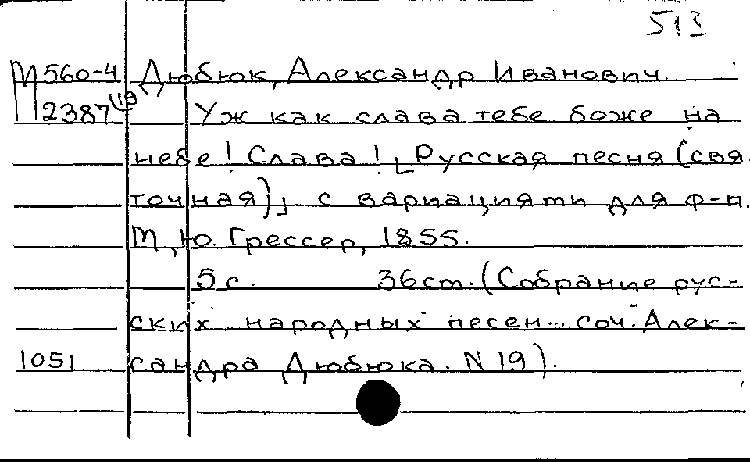 513
М560-4 Дюбюк, Александр Иванович.
2387(19) Уж как слава тебе боже на
небе! Слава! [Русская песня (свя-
точная)] с вариациями для ф-п.
М., Ю. Грессер, 1855.
5 с. 36 см. (Собрание рус-
ских народных песен... соч. Алек-
1051 сандра Дюбюка. N 19).